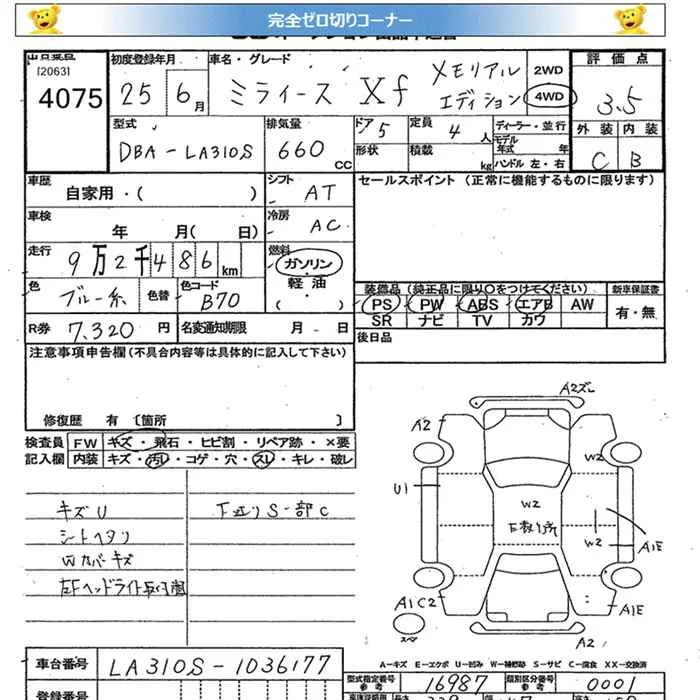 完全ゼロ切りコーナー
出品番号
[2063]
4075
初度登録年月
25 6月
車名・グレード
ミライース Xf メモリアル エディション
2WD
4WD
評価点
3.5
外装 内装
C B
型式
DBA-LA310S
排気量
660 CC
ドア 5
形状
定員 4 人
積載 kg
ディーラー・並行
モデル年式 年
ハンドル 左・右
車歴
自家用・( )
シフト
AT
セールスポイント (正常に機能するものに限ります)
車検
年 月( 日)
冷房
AC
走行
9万2千486km
燃料
ガソリン・
軽油・
( )
色
ブルー系
色替
色コード
B70
装備品 (純正品に限り○をつけてください)
新車保証書
PS PW ABS エアB AW
SR ナビ TV カワ
有・無
R券 7,320 円
名変通知期限 月 - 日
後日品
注意事項申告欄(不具合内容等は具体的に記入して下さい)
修復歴 有 〔箇所 〕
検査員
記入欄
FW キズ・飛石・ヒビ割・リペア跡・×要
内装 キズ・汚レ・コゲ・穴・スレ・キレ・破レ
キズU
シートヘタリ
Wカバーキズ
左Fヘッドライト
下廻りS一部C
A2ズレ
A2
U1
W2
W2
A1E
A1C2
スペア
A1E
A2
A-キズ E-エクボ U-凹み W-補修跡 S-サビ C-腐食 XX-交換済
車台番号
LA310S-1036177
型式指定番号
参考
16987
類別区分番号
参考
0001
登録番号